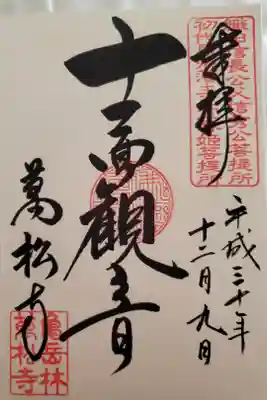 織田信長公父信秀公菩提所
姫菩提所
奉拝
平成三十年
十二月九日
十一面觀音
萬松寺
龜岳林
萬松寺